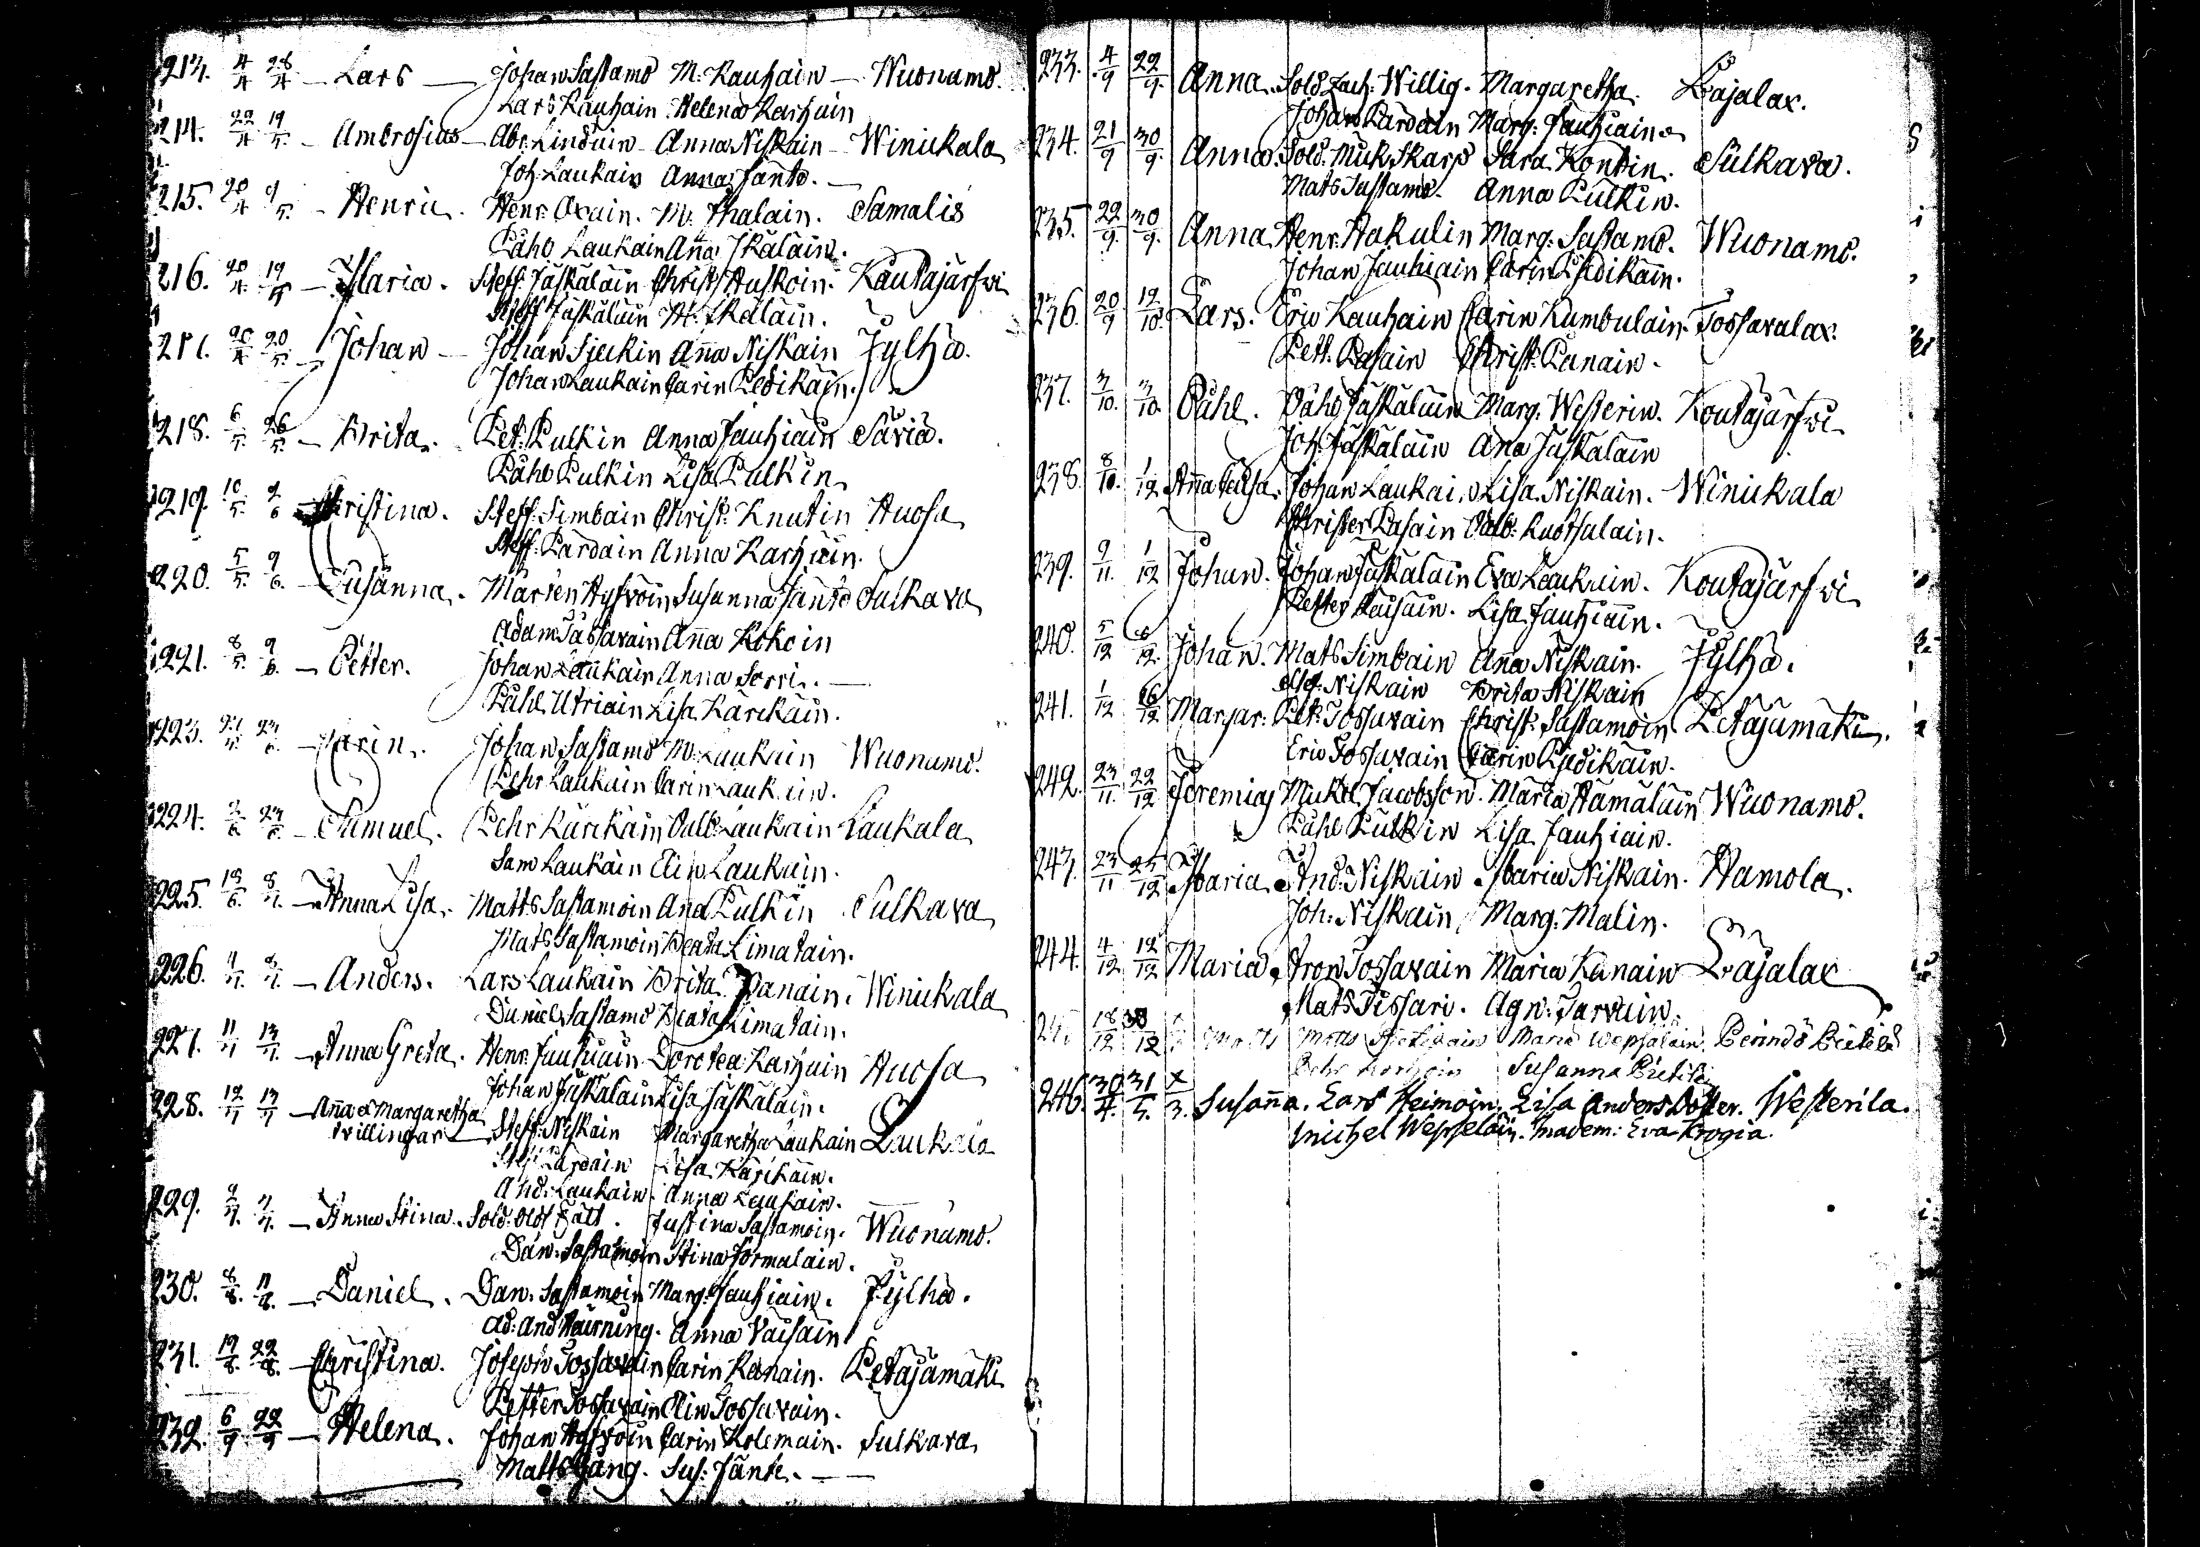 213. 4/4 28/4 - Lars - Johan Sastamo M. Kauhain - Wuonamo.
Lars Kauhain Helena Karhain
214. 22/4 19/5. - Ambrosius - Abr. Linduin - Anna Niskain - Winickala
Joh. Laukain Anna Jänto. -
215. 20/4 9/5. - Henric. Henr. Oxain. M. Ihalain. Samalis
Påhl Laukain Aña Ikälain.
216. 20/4. 19/5 - Maria. Steff. Jäskäläin Christ. Huskoin. Kautajärfwi
Steff Jäskäläin M. Ikäläin.
217. 20/4 20/5. - Johan - Johan Sjeckin Aña Niskain Jylhä.
Johan Laukain Carin Pedikäin.
218. 6/5. 26/5. - Brita. Pet. Pulkin Anna Jauhiain Savia.
Påhl Pulkin Lisa Pulkin
219. 10/5. 9/6 Christina. Steff. Simbain Christ. Knutin Huosa
Steff. Pardain Anna Karhain.
220. 5/5. 9/6. - Susanna. Mårten Hyfvöin Susanna Jänto Sulkava
Adam Tassavain Aña Kokoin
221. 8/5. 9/6. - Petter. Johan Laukain Anna Sorri. -
Påhl Utriain Lisa Kärckäin.
223. 23/6. - Carin. Johan Sastamo M. Laukain Wuonamo.
Pehr Laukain Carin Laukain.
224. 23/6. - Samuel. Pehr Kärckäin Walb. Laukain Laukala
Sam Laukain Elin Laukain.
225. 18/6. 8/7. - Anna Lisa. Matts Sastamoin Ana Pulkin Sulkava
Mats Sastamoin Beata Limatain.
226. 4/7. 8/7. - Anders. Lars Laukain Brita Panain. Winickala
Daniel Sastamo Beata Limatain.
227. 11/7 13/7. - Anna Greta. Henr. Jauhiain Dorotea Karhain Huosa
Johan Jäskäläin Lisa Jäskäläin.
228. 12/7 13/7 - Aña & Margaretha
tvillingar Steff. Niskain Margaretha Laukain Laukala
Steff Pardain Lisa Kärckäin.
And. Laukain. Anna Laukain.
229. 2/7. 7/7. - Anna Stina. Sold. Olof Fält. Justina Sastamoin. Wuonamo.
Dan. Sastamoin Stina Tormalain.
230. 8/8. 11/8. - Daniel. Dan. Sastamoin Marg. Jauhiain. Jylhä.
Ad: And Wairning. Anna Vaisain
231. 19/8. 22/8. - Christina. Joseph Tossavain Carin Kanain. Petäjämäki
Petter Tossavain Elin Tossavain.
232. 6/9 22/9 - Helena. Johan Hyfvöin Carin Kolemain. Sulkava
Matts Gäng. Sus: Jänte. -
233. 4/9 22/9. Anna. Sold. Zach: Willig. Margaretha. Pajalax.
Johan Pardain Marg: Jauhiain
234. 21/9 30/9. Anna. Sold. Mick. Skarp Sara Kontin. Sulkava.
Mats Sastamo. Anna Pulkin.
235. 22/9. 30/9. Anna Henr. Hakulin Marg. Sastamo. Wuonamo.
Johan Jauhiain Carin Pedikäin.
236. 20/9 12/10. Lars. Eric Kauhain Carin Kumbulain. Tossavalax.
Pett. Pasain Christ. Panain.
237. 3/10. 3/10. Påhl. Påhl Jäskäläin Marg. Westerin. Koutajärfwi
Joh. Jäskäläin Aña Jäskäläin
238. 8/10. 1/12 Aña Caisa. Johan Laukain Lisa Niskain. Winickala
Christer Pasain Walb. Ruotsalain.
239. 9/11. 1/12 Johan. Johan Jäskäläin Eva Laukain. Koutajärfwi
Petter Kaisain. Lisa Jauhiain.
240. 5/12 6/12. Johan. Mats Simbain Aña Niskain. Jylhä.
Niskain Brita Niskain
241. 1/12 16/12 Margar: Pet. Tossavain Christ. Sastamoin Petäjämäki.
Eric Tossavain Carin Pedikäin.
242. 23/11. 22/12 Jeremias Mickel Jacobsson. Maria Hämäläin Wuonamo.
Påhl Pulkin Lisa Jauhiain.
243. 23/11 25/12 Maria And: Niskain Maria Niskain. Hamola.
Joh: Niskain Marg: Malin.
244. 4/12 12/12 Maria. Aron Tossavain Maria Kanain Pajalax
Mats Tissari. Agn: Tarvain.
18/12 Matts Matts Maria Wepsäläin.
Pehr Susanna
246. 30/4. 31/5. x/3. Susaña. Lars Heimoin. Lisa Anders Dotter. Westerila.
Michel Wepseläin. Madem: Eva Krogia.